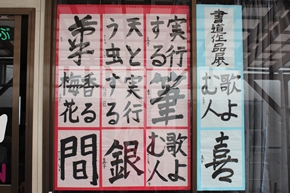 書道作品展
歌よ
む人
喜
実行
する
筆
歌よ
む人
天と
う虫
実行
する
銀
香る
梅花
間